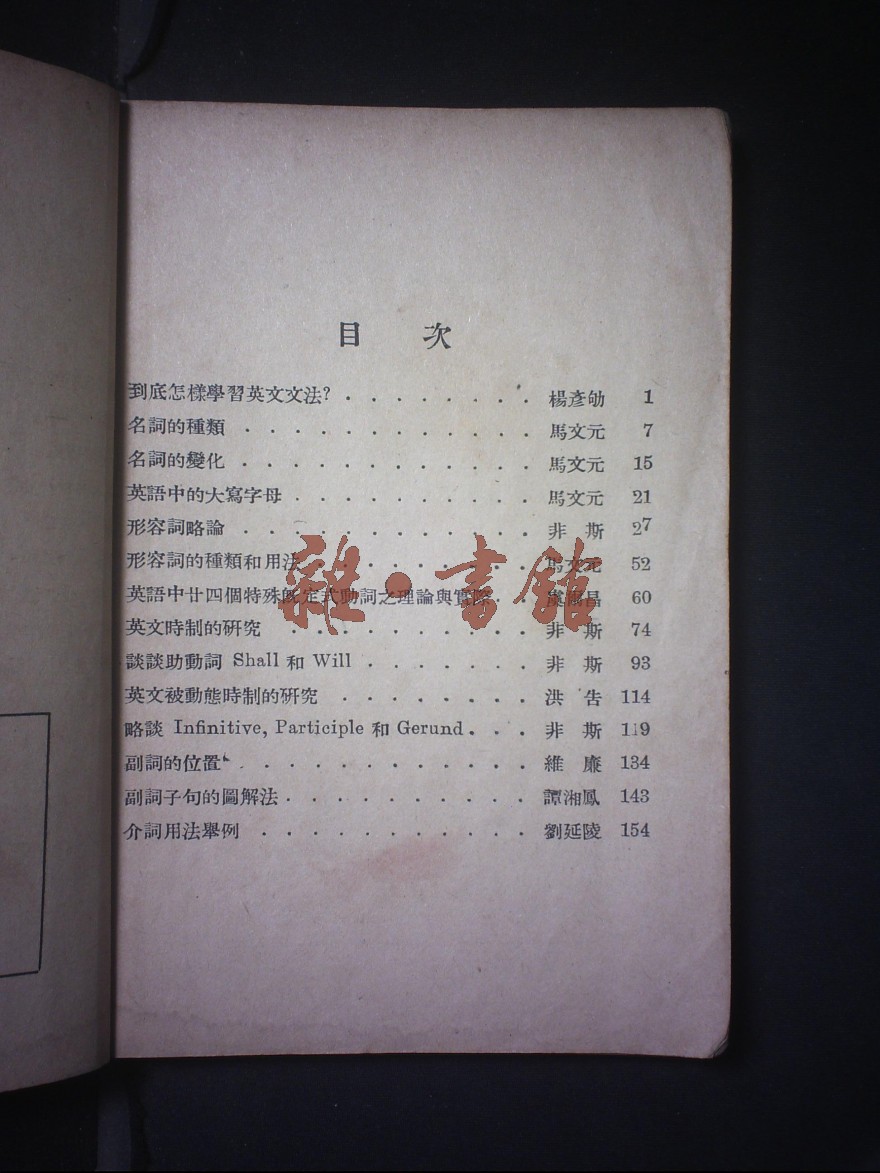 目 次
到底怎樣學習英文文法? . . . . . . . . 楊彥劬 1
名詞的種類 . . . . . . . . . . . . 馬文元 7
名詞的變化 . . . . . . . . . . . . 馬文元 15
英語中的大寫字母 . . . . . . . . . . 馬文元 21
形容詞略論 . . . . . . . . . . . . 非 斯 27
形容詞的種類和用法 . . . . . . . . . 馬文元 52
英語中廿四個特殊旣定式動詞之理論與實際 . . 虞爾昌 60
英文時制的硏究 . . . . . . . . . . 非 斯 74
談談助動詞 Shall 和 Will . . . . . . . 非 斯 93
英文被動態時制的硏究 . . . . . . . . 洪 告 114
略談 Infinitive, Participle 和 Gerund . . . 非 斯 119
副詞的位置 . . . . . . . . . . . . 維 廉 134
副詞子句的圖解法 . . . . . . . . . . 譚湘鳳 143
介詞用法舉例 . . . . . . . . . . . 劉延陵 154
雜·書館